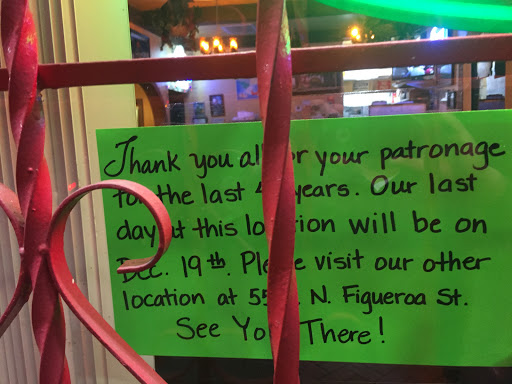 Thank you all for your patronage
for the last 4 years. Our last
day at this location will be on
Dec. 19th. Please visit our other
location at 55 N. Figueroa St.
See You There!